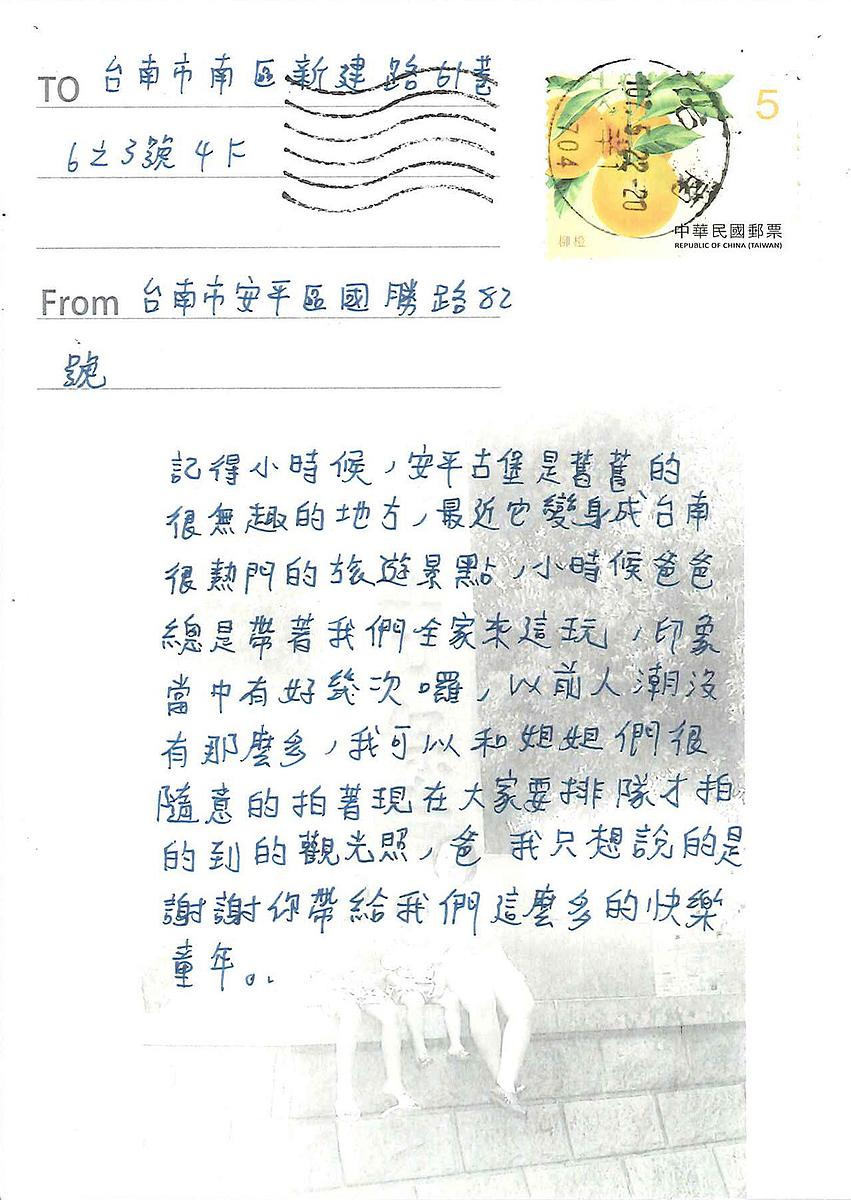 TO 台南市南區新建路61巷
6之3號4F
From 台南市安平區國勝路82
號
5
柳橙
中華民國郵票
REPUBLIC OF CHINA (TAIWAN)
704
記得小時候,安平古堡是舊舊的
很無趣的地方,最近它變身成台南
很熱門的旅遊景點,小時候爸爸
總是帶著我們全家來這玩,印象
當中有好幾次囉,以前人潮沒
有那麼多,我可以和姐姐們很
隨意的拍著現在大家要排隊才拍
的到的觀光照,爸 我只想說的是
謝謝你帶給我們這麼多的快樂
童年。